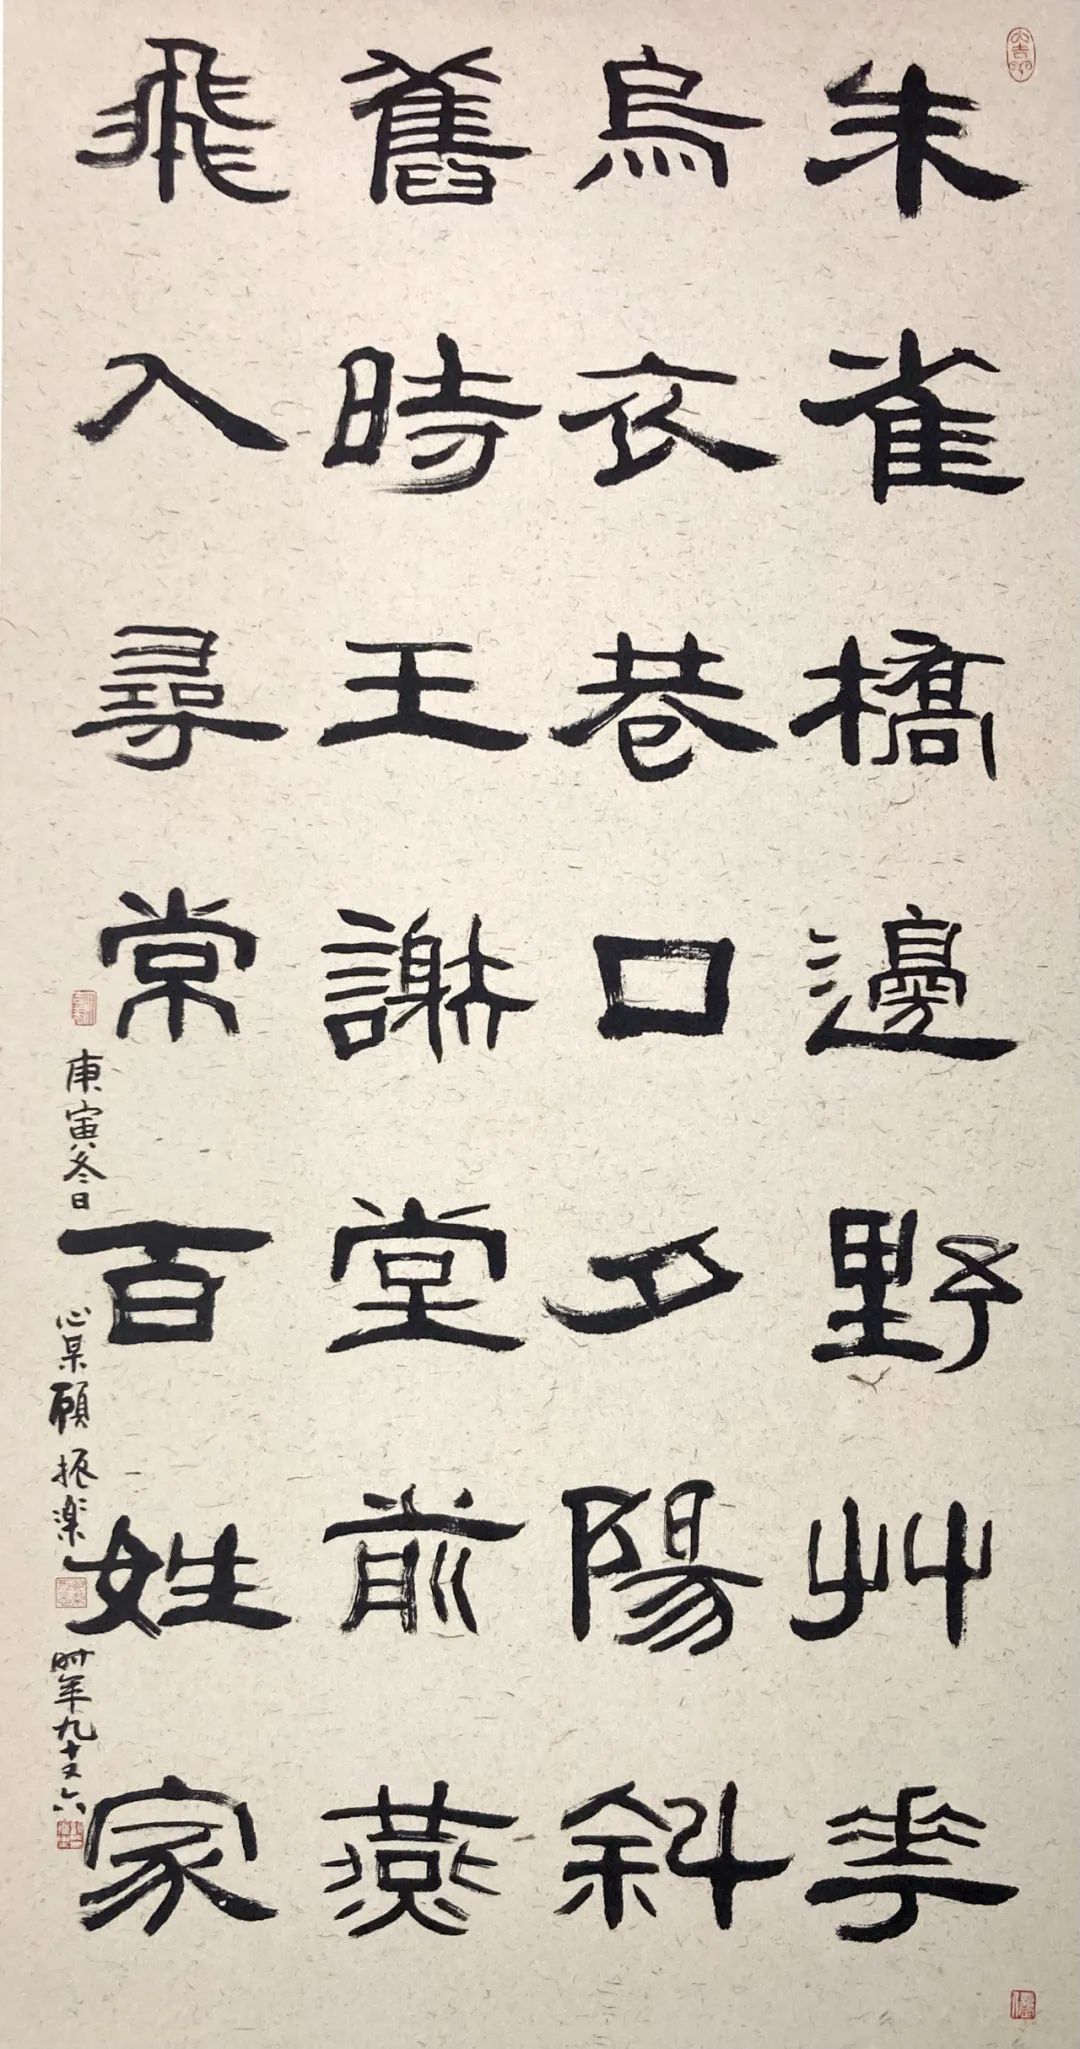 朱雀橋邊野艸華
烏衣巷口夕陽斜
舊時王謝堂前燕
飛入尋常百姓家
庚寅冬日
心某顧振樂
時年九十又六